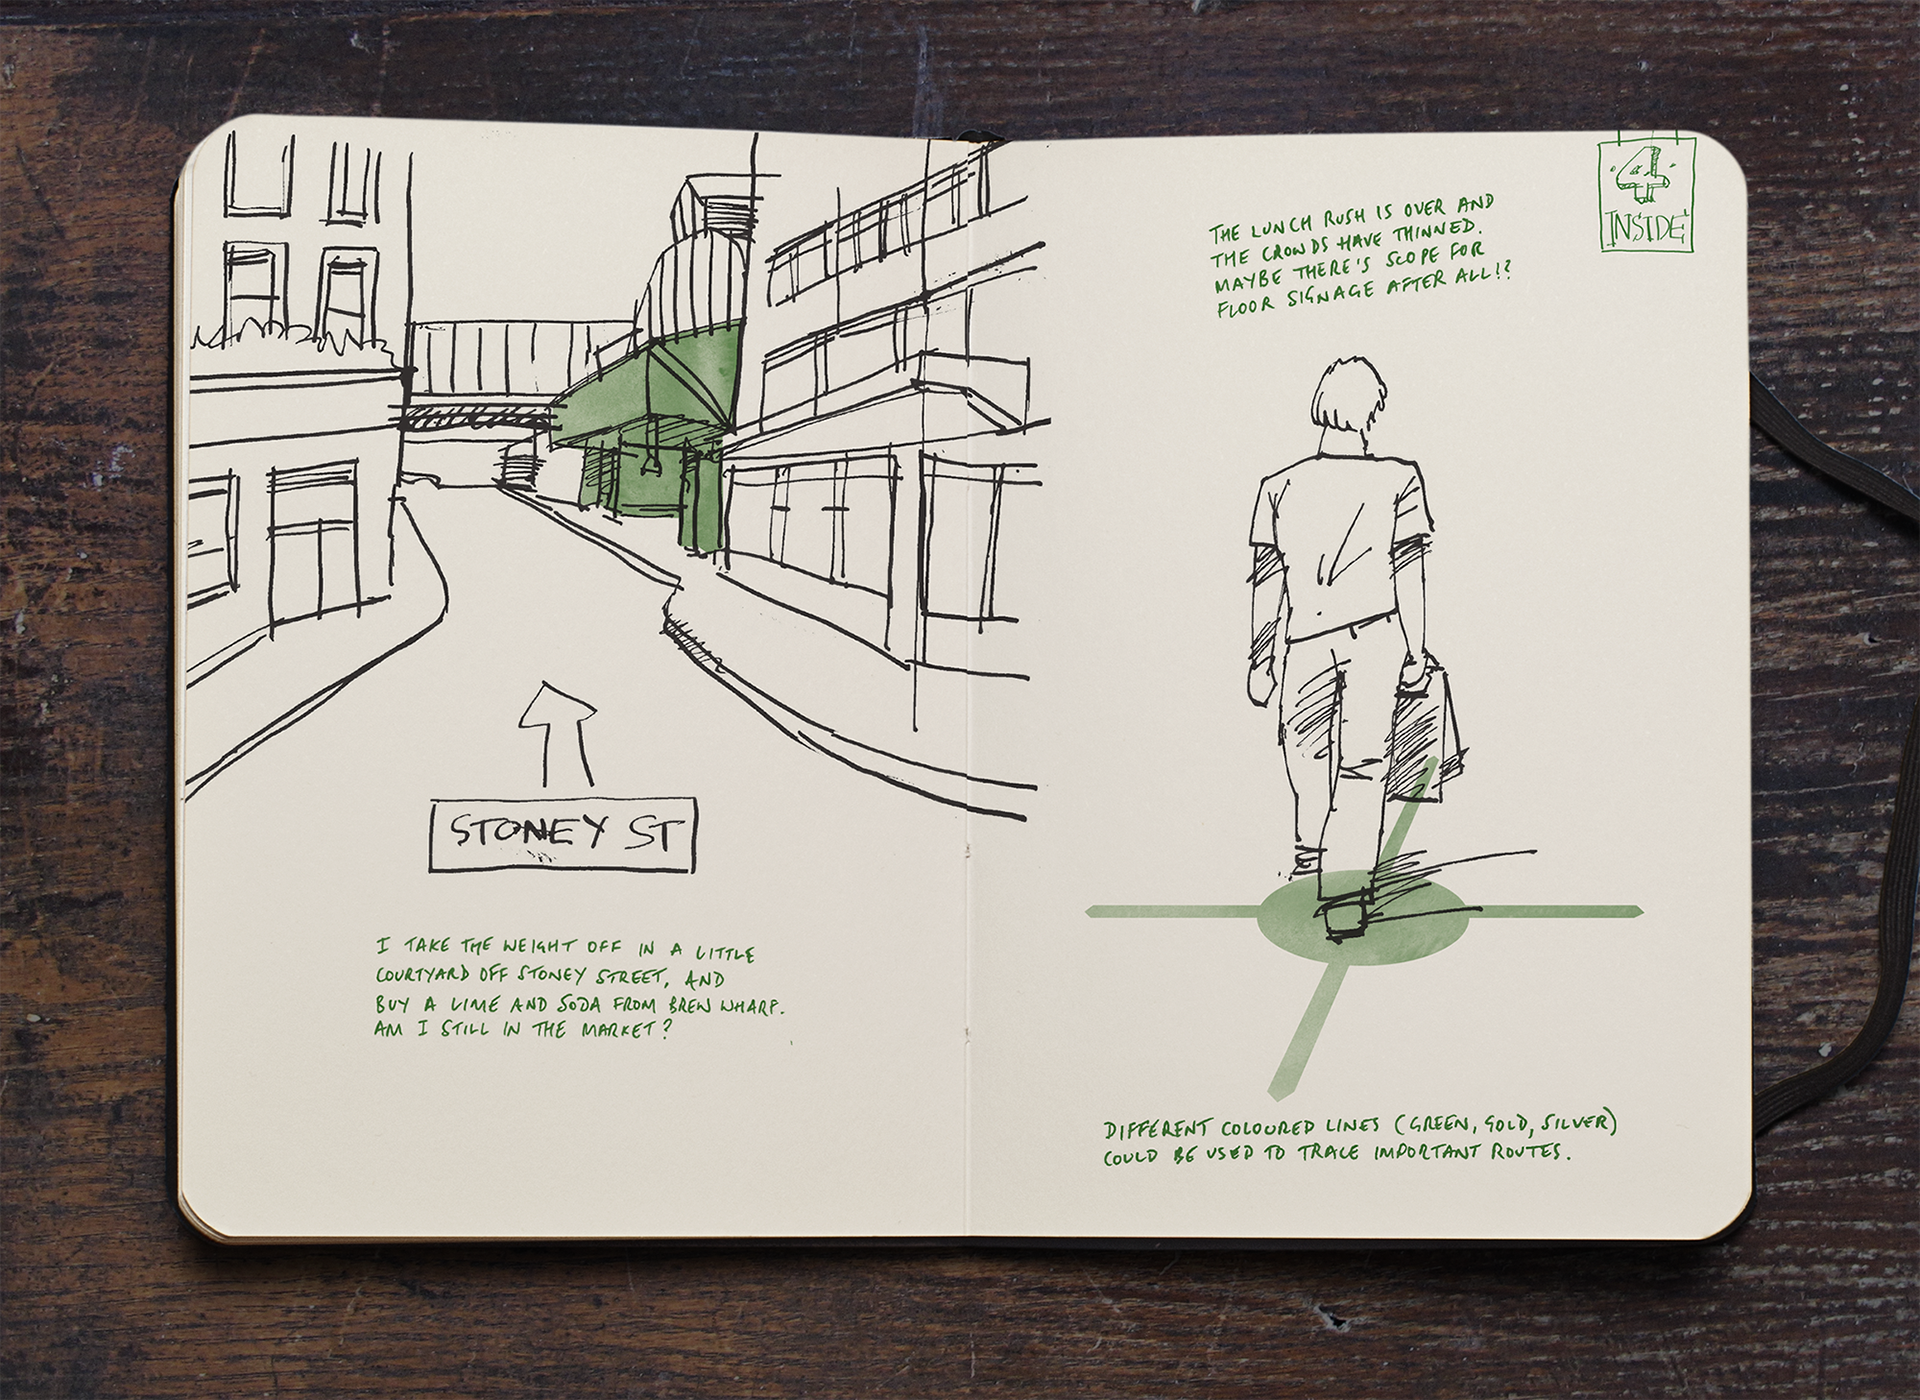 STONEY ST
I TAKE THE WEIGHT OFF IN A LITTLE
COURTYARD OFF STONEY STREET, AND
BUY A LIME AND SODA FROM BREW WHARF.
AM I STILL IN THE MARKET?
4
INSIDE
THE LUNCH RUSH IS OVER AND
THE CROWDS HAVE THINNED.
MAYBE THERE'S SCOPE FOR
FLOOR SIGNAGE AFTER ALL!?
DIFFERENT COLOURED LINES (GREEN, GOLD, SILVER)
COULD BE USED TO TRACE IMPORTANT ROUTES.